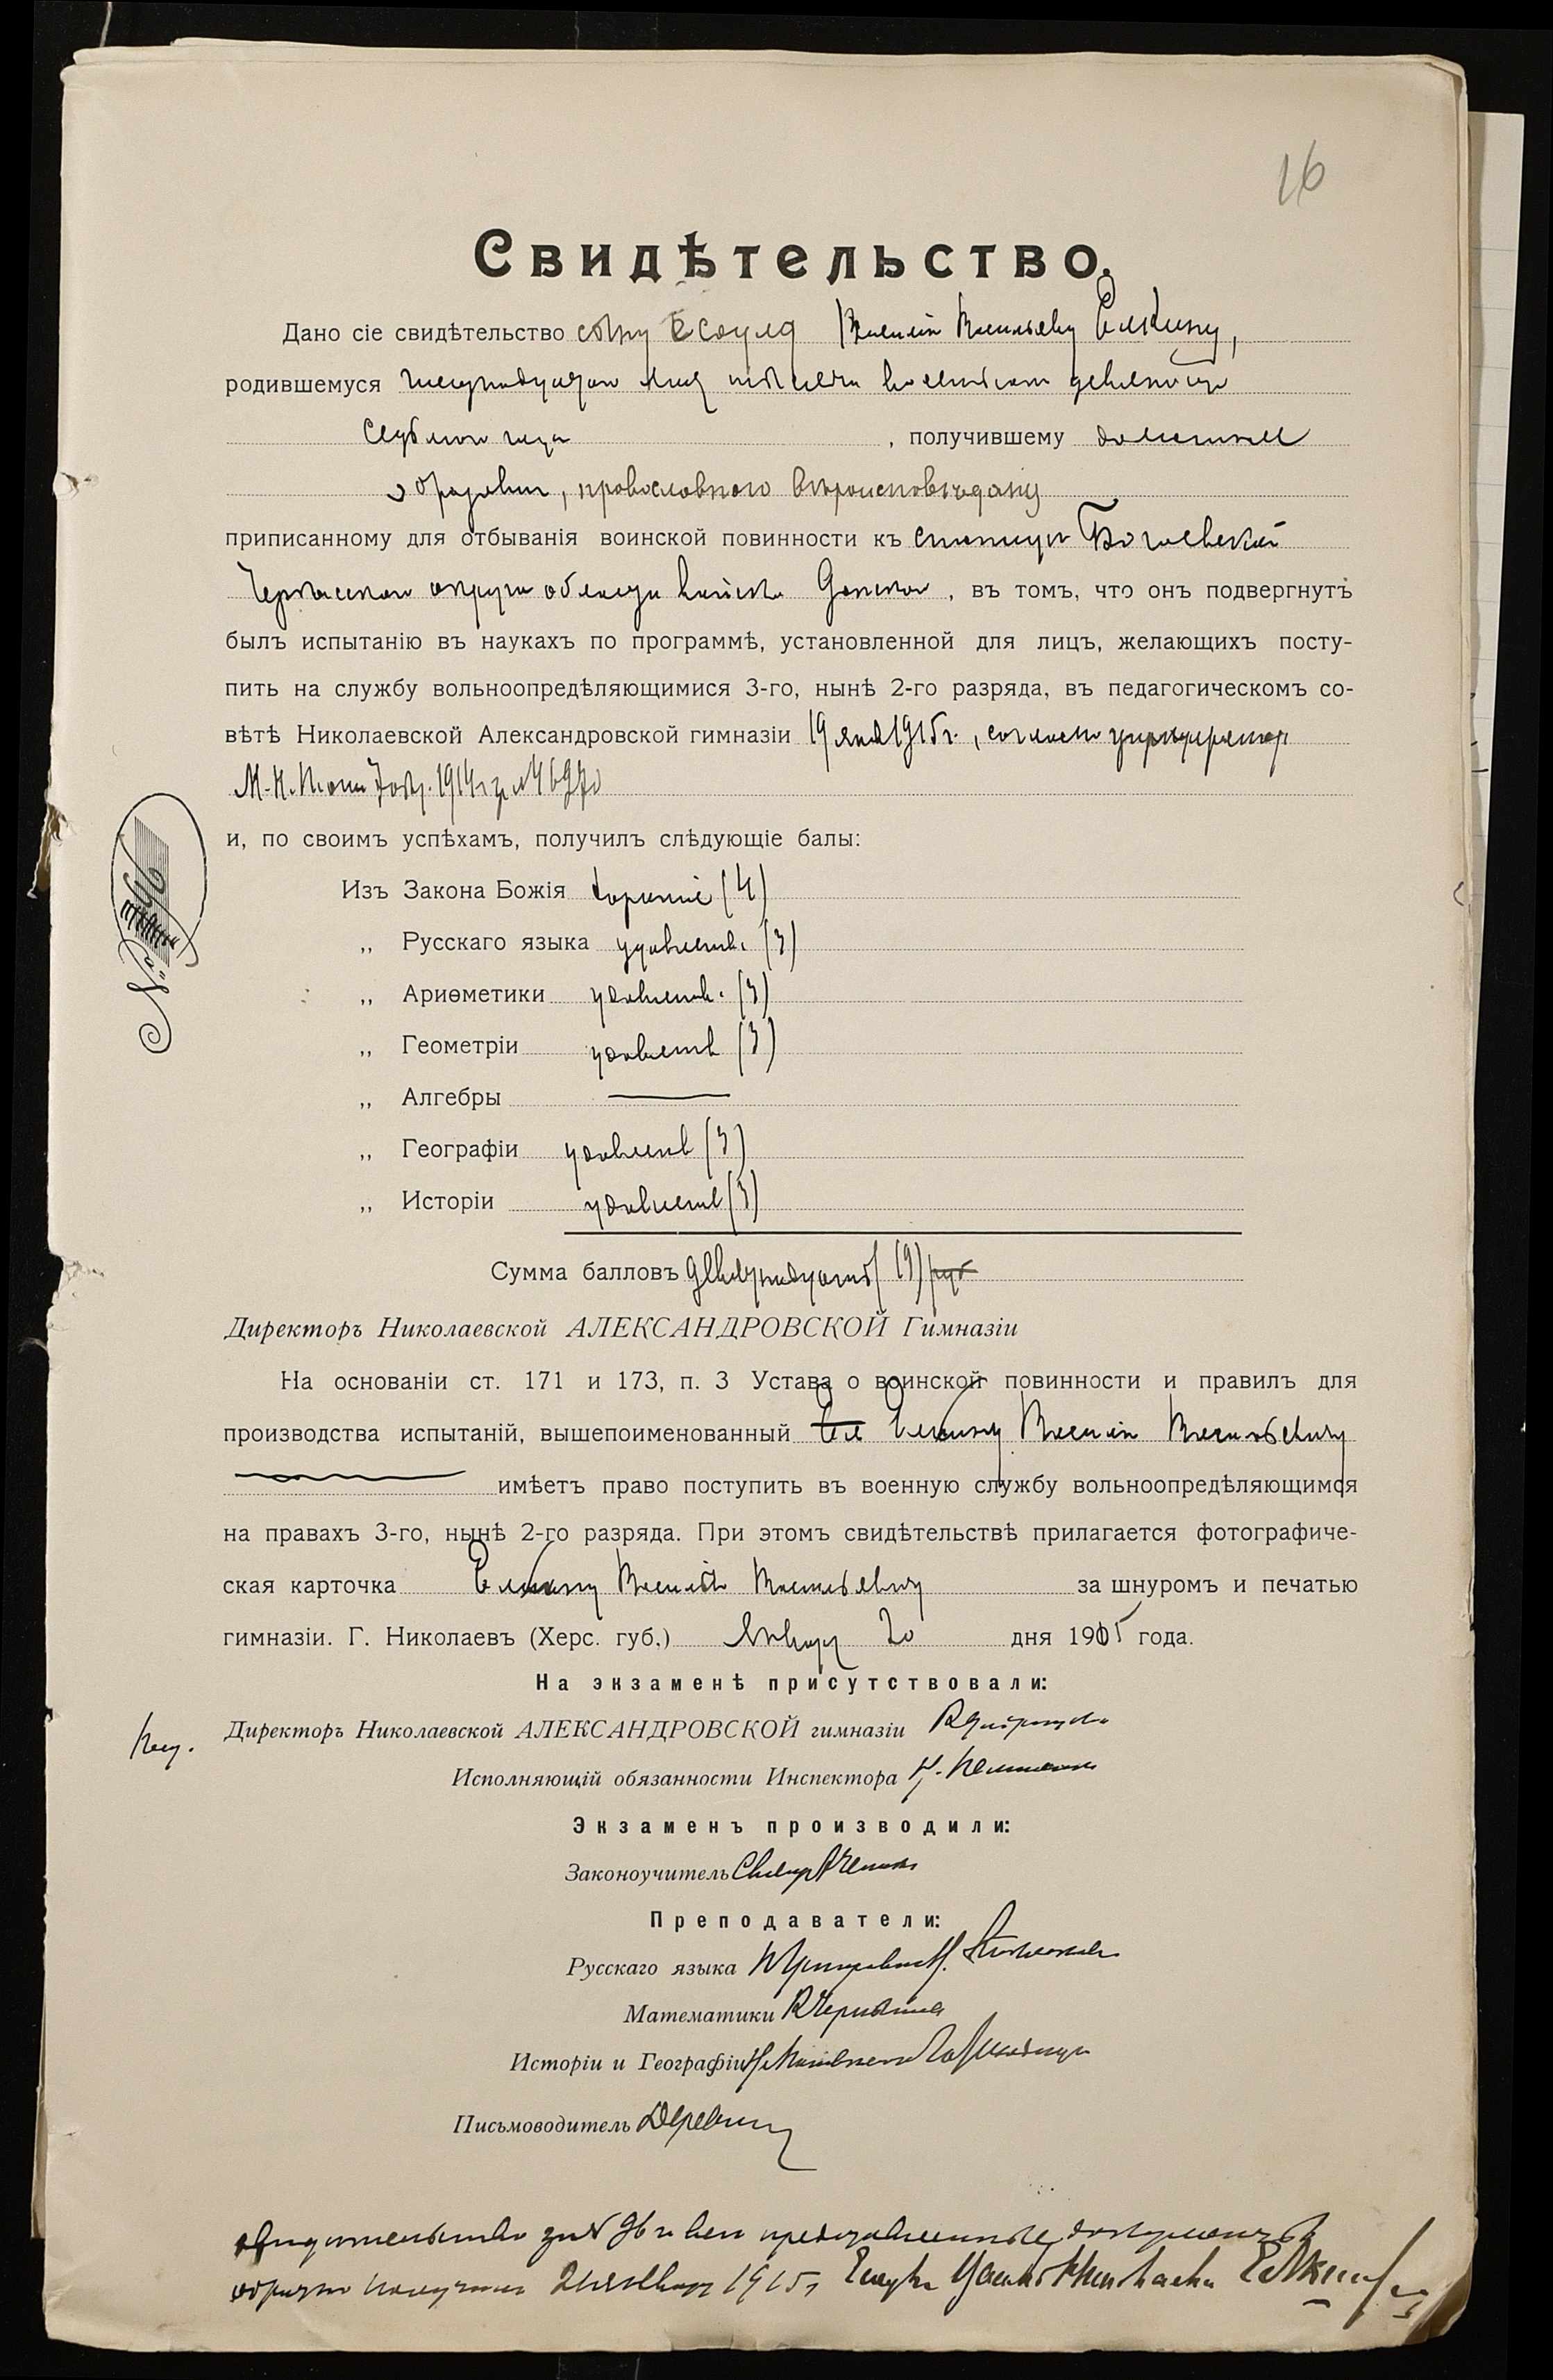 16
Свидѣтельство.
Дано сіе свидѣтельство сыну Есаула Василію Васильеву Елкину,
родившемуся шестнадцатаго мая тысяча восемьсот девяносто
седьмого года, получившему домашнее
образованіе, православного вѣроисповѣданія
приписанному для отбыванія воинской повинности къ станицѣ Богаевской
Черкасскаго округа области войска Донского, въ томъ, что онъ подвергнутъ
былъ испытанію въ наукахъ по программѣ, установленной для лицъ, желающихъ посту-
пить на службу вольноопредѣляющимися 3-го, нынѣ 2-го разряда, въ педагогическомъ со-
вѣтѣ Николаевской Александровской гимназіи 19 янв 1915 г., согласно
М. Н. 1914 г. за №
и, по своимъ успѣхамъ, получилъ слѣдующіе балы:
№ 96
Изъ Закона Божія хорошіе (4)
„ Русскаго языка удовлетв. (3)
„ Ариѳметики удовлетв. (3)
„ Геометріи удовлетв (3)
„ Алгебры —
„ Географіи удовлетв (3)
„ Исторіи удовлетв (3)
Сумма балловъ девятнадцать (19)
Директоръ Николаевской АЛЕКСАНДРОВСКОЙ Гимназіи
На основаніи ст. 171 и 173, п. 3 Устава о воинской повинности и правилъ для
производства испытаній, вышепоименованный Елкину Василію Васильевичу
имѣетъ право поступить въ военную службу вольноопредѣляющимся
на правахъ 3-го, нынѣ 2-го разряда. При этомъ свидѣтельствѣ прилагается фотографиче-
ская карточка Елкину Василію Васильевичу за шнуромъ и печатью
гимназіи. Г. Николаевъ (Херс. губ.) Января 20 дня 1915 года.
На экзаменѣ присутствовали:
Директоръ Николаевской АЛЕКСАНДРОВСКОЙ гимназіи
Исполняющій обязанности Инспектора
Экзаменъ производили:
Законоучитель
Преподаватели:
Русскаго языка
Математики
Исторіи и Географіи
Письмоводитель
свидительство за № 96 и все представленные документы
обратно получил 21 января 1915 г Елкин